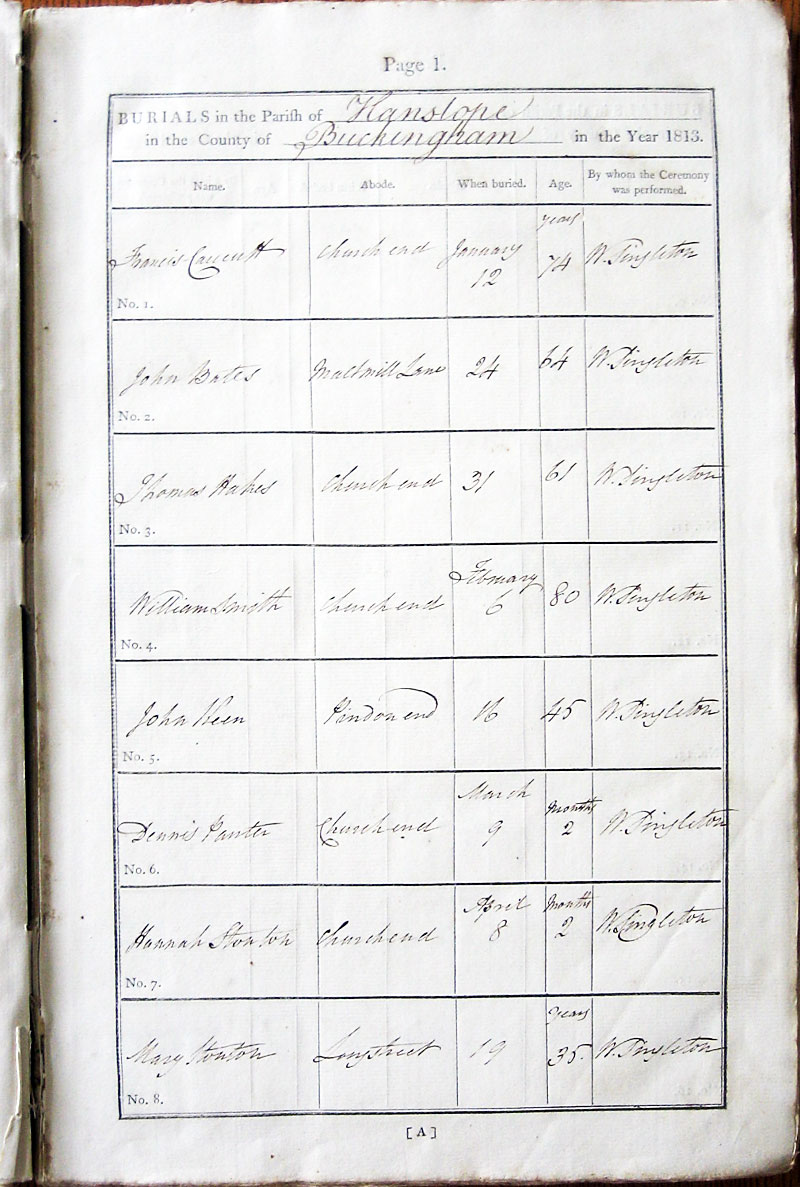 Page 1.
BURIALS in the Parish of Hanslope
in the County of Buckingham in the Year 1813.
Name. Abode. When buried. Age. By whom the Ceremony
was performed.
years
Francis Church end January 74 W. Singleton
12
No. 1.
John Bates Lane 24 64 W. Singleton
No. 2.
Thomas Hakes Church end 31 61 W. Singleton
No. 3.
February
William Smith Church end 6 80 W. Singleton
No. 4.
John Keen Pindon end 16 45 W. Singleton
No. 5.
March Months
Dennis Panter Church end 9 2 W. Singleton
No. 6.
April Months
8 2 W. Singleton
Hannah Stonton Church end
No. 7.
years
Mary Stonton Longstreet 19 35. W. Singleton
No. 8.
[A]